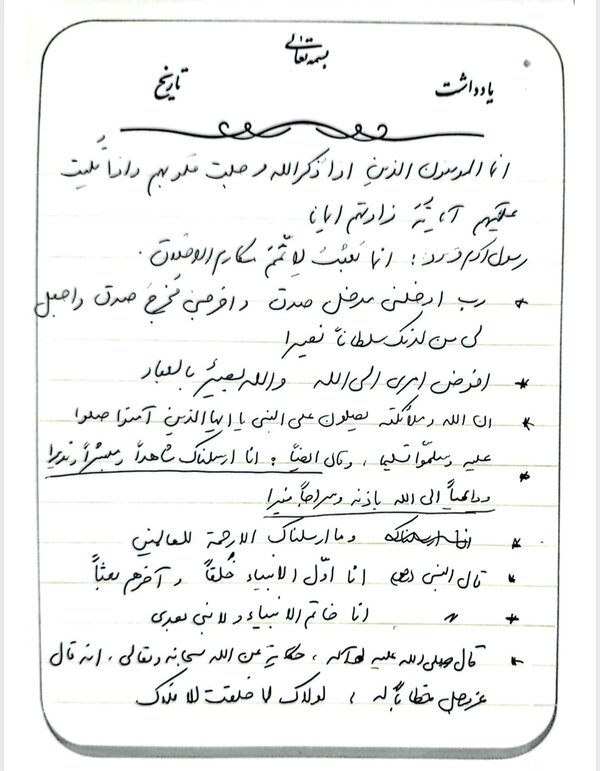 بسمه تعالی
یادداشت
تاریخ
انما المومنون الذین اذا ذکر الله وجلت قلوبهم واذا تلیت
علیهم آیاته زادتهم ایمانا
رسول اکرم فرمود: انما بعثت لاتمم مکارم الاخلاق.
* رب ادخلنی مدخل صدق و اخرجنی مخرج صدق واجعل
لی من لدنک سلطاناً نصیرا
* افوض امری الی الله والله بصیر بالعباد
* ان الله و ملائکته یصلون علی النبی یا ایها الذین آمنوا صلوا
علیه وسلموا تسلیما، وقال ایضاً: انا ارسلناک شاهداً و مبشراً ونذیرا
* وداعیاً الی الله باذنه وسراجاً منیرا
* وما ارسلناک الا رحمة للعالمین
* قال النبی (ص) انا اوّل الانبیاء خُلقاً و آخرهم بعثاً
* 〃 انا خاتم الانبیاء ولا نبی بعدی
* قال صلی الله علیه وآله، حکایة عن الله سبحانه وتعالی، انه قال
عزوجل خطاباً له، لولاک لما خلقت الافلاک